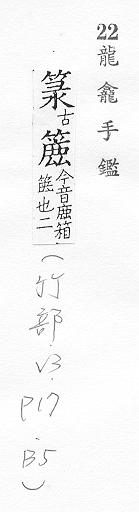 22龍龕手鑑
篆古簏今音鹿箱
簏也二
(竹部.V3.
P17.B5)